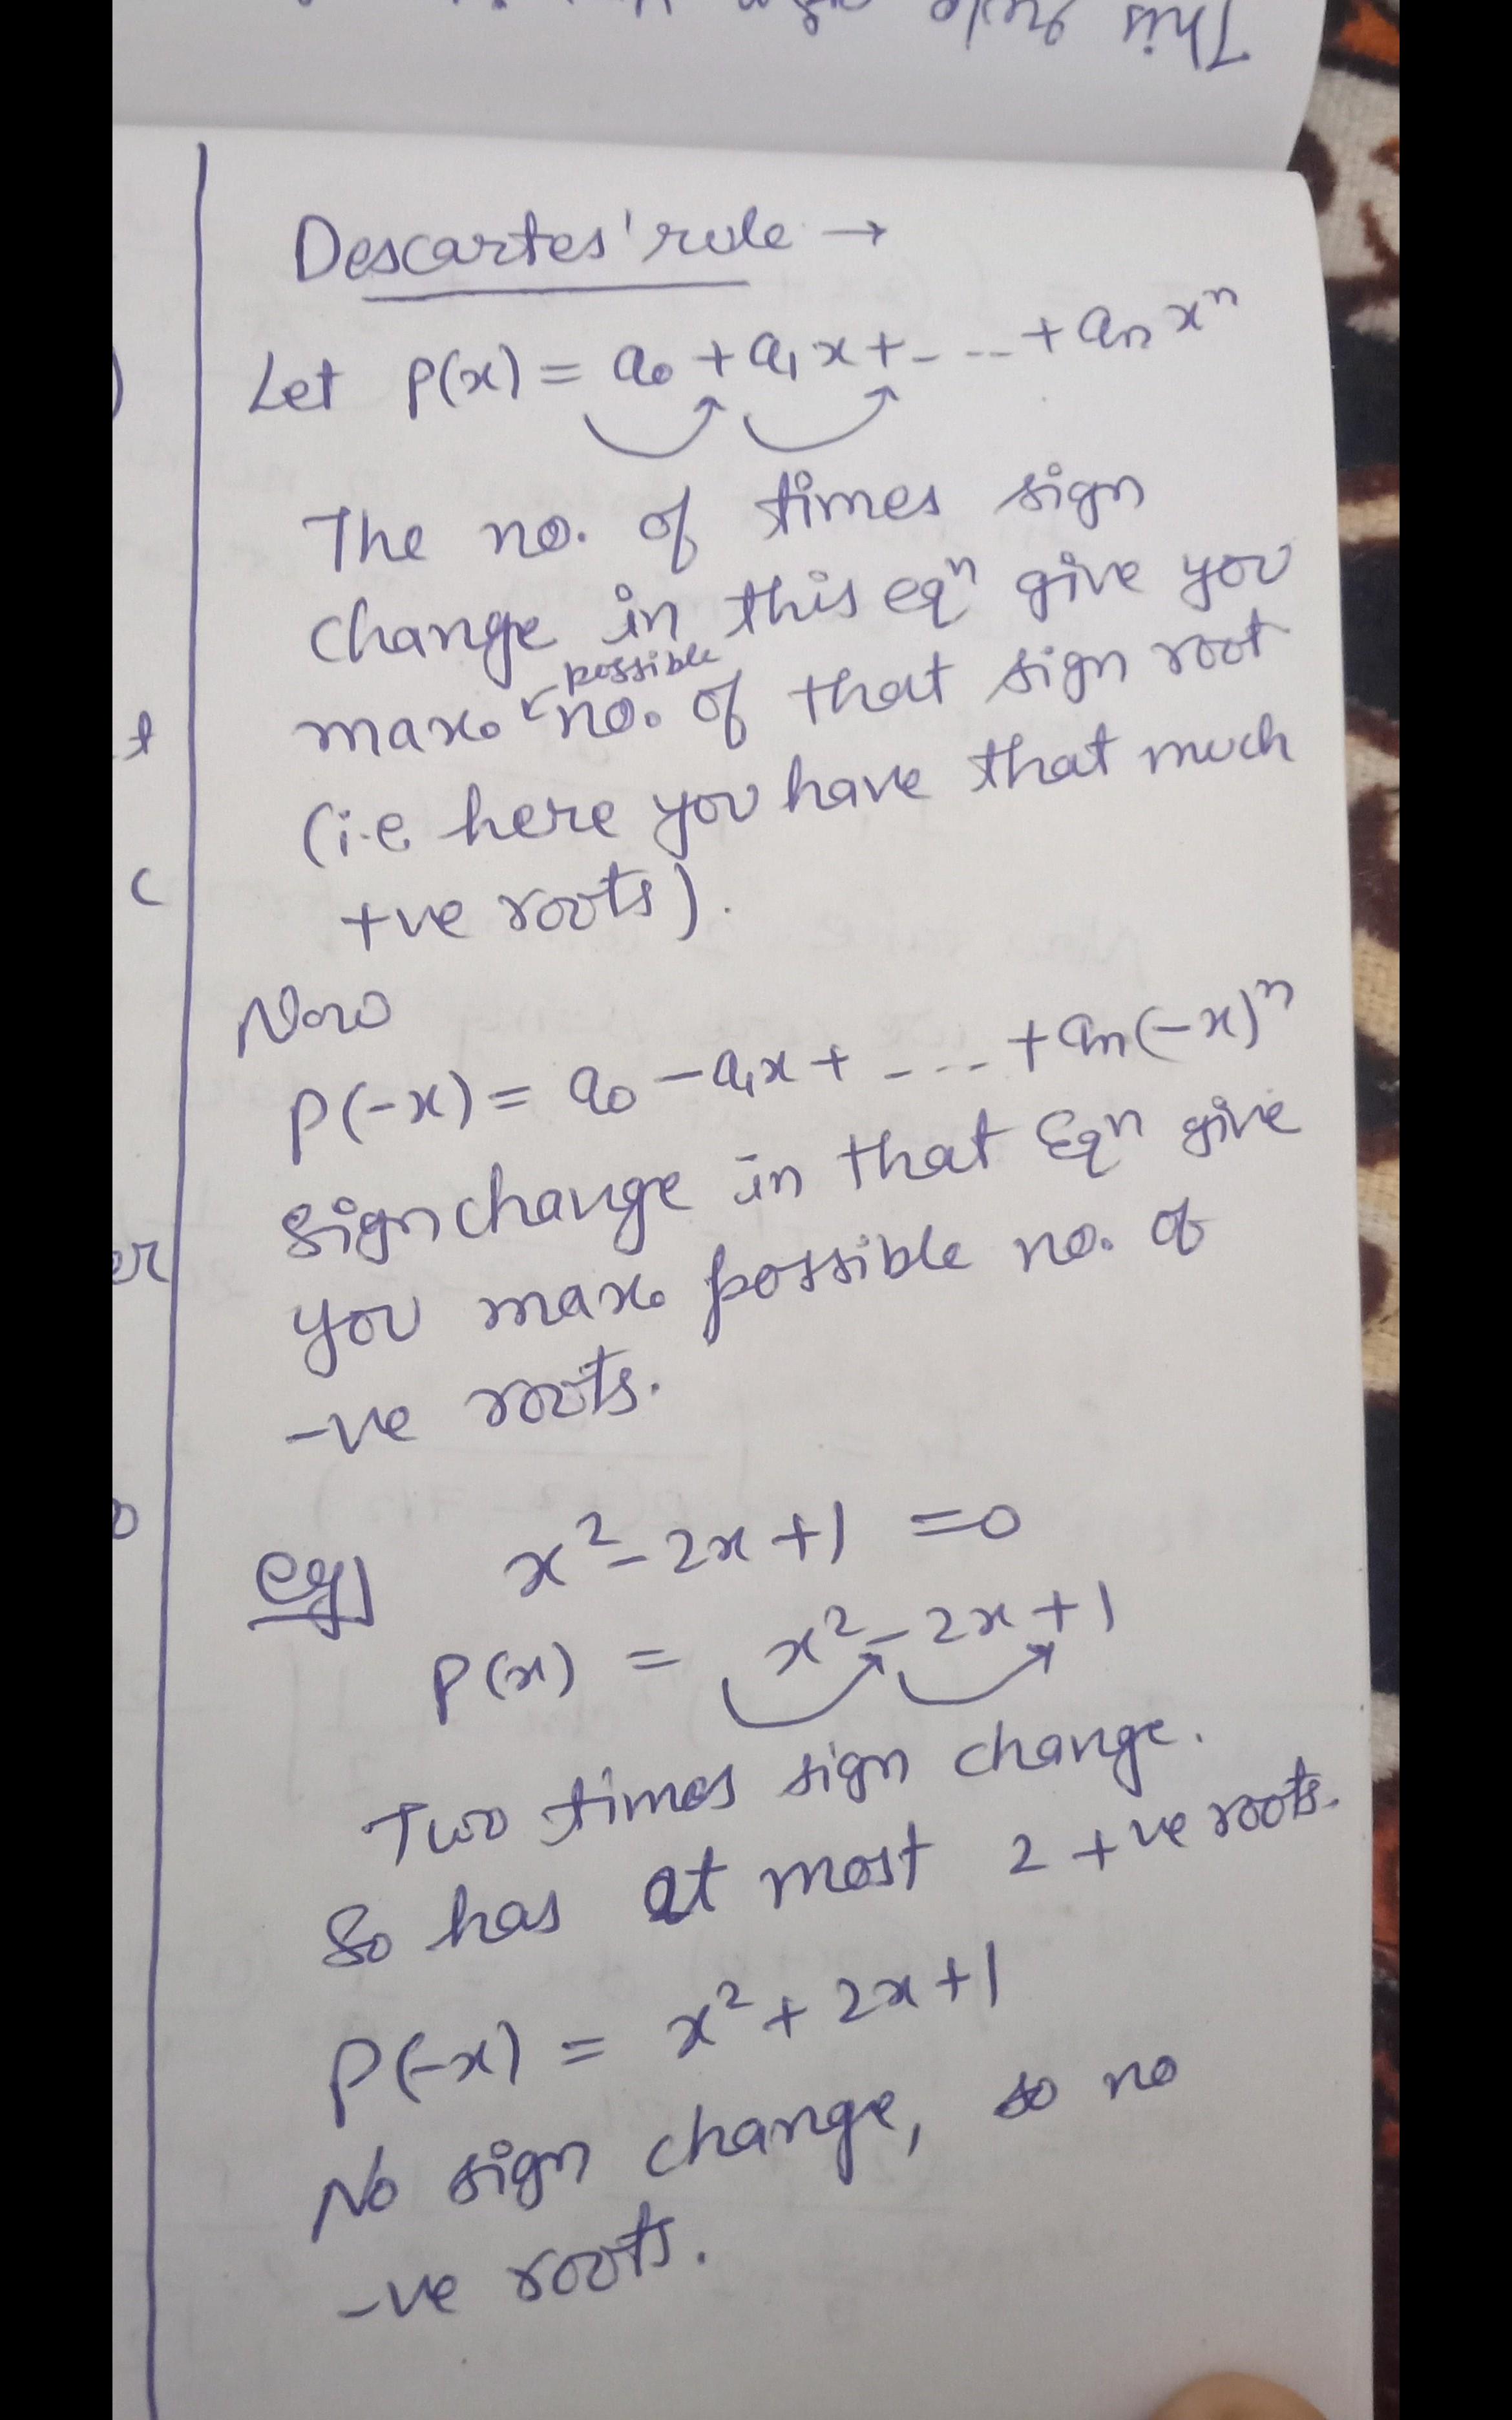 This rule
Descartes' rule →
Let P(x) = a₀ + a₁x + - -- + aₙxⁿ
The no. of times sign
change in this eqⁿ give you
possible
max. no. of that sign root
(i.e. here you have that much
+ve roots).
Now
P(-x) = a₀ - a₁x + - -- + aₙ(-x)ⁿ
sign change in that Eqⁿ give
you max. possible no. of
-ve roots.
eg] x² - 2x + 1 = 0
P(x) = x² - 2x + 1
Two times sign change.
So has at most 2 +ve roots.
P(-x) = x² + 2x + 1
No sign change, so no
-ve roots.
t
c
er